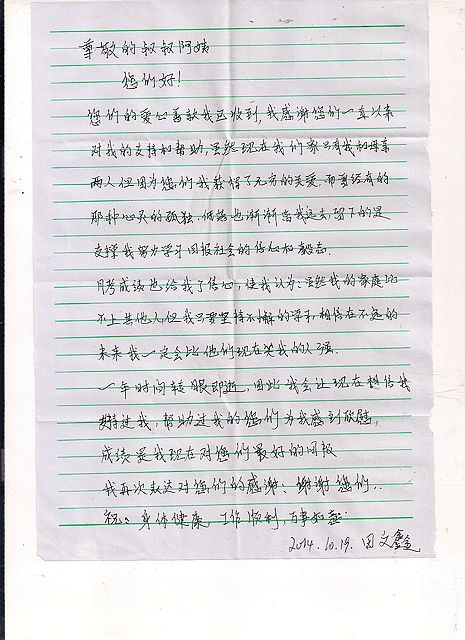 尊敬的叔叔阿姨
您们好!
您们的爱心善款我已收到,我感谢您们一直以来
对我的支持和帮助,虽然现在我们家只有我和母亲
两人但因为您们我获得了无穷的关爱,而曾经有的
那种心灵的孤独、伤感也渐渐离我远去,留下的是
支撑我努力学习回报社会的信心和毅志.
月考成绩也给我了信心,使我认为:虽然我的家庭比
不上其他人,但我只要坚持不懈的学习,相信在不远的
未来我一定会比他们现在笑我的人强.
一年时间转眼即逝,因此我会让现在相信我
支持过我,帮助过我的您们为我感到欣慰,
成绩是我现在对您们最好的回报
我再次表达对您们的感谢:谢谢您们..
祝:身体健康 工作顺利,百事如意
2014.10.19. 田文鑫